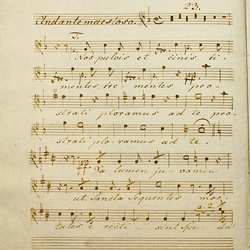 23.
Andante maestoso.
T.
Nos pulvis et cinis si-
mentes tre mentes pro-
strati ploramus ad te pro-
strati plo-ramus ad te.
Da lumen ju-vamen
ut Sancta Sequentes mor-
a 2.
tales e recti sint spe da